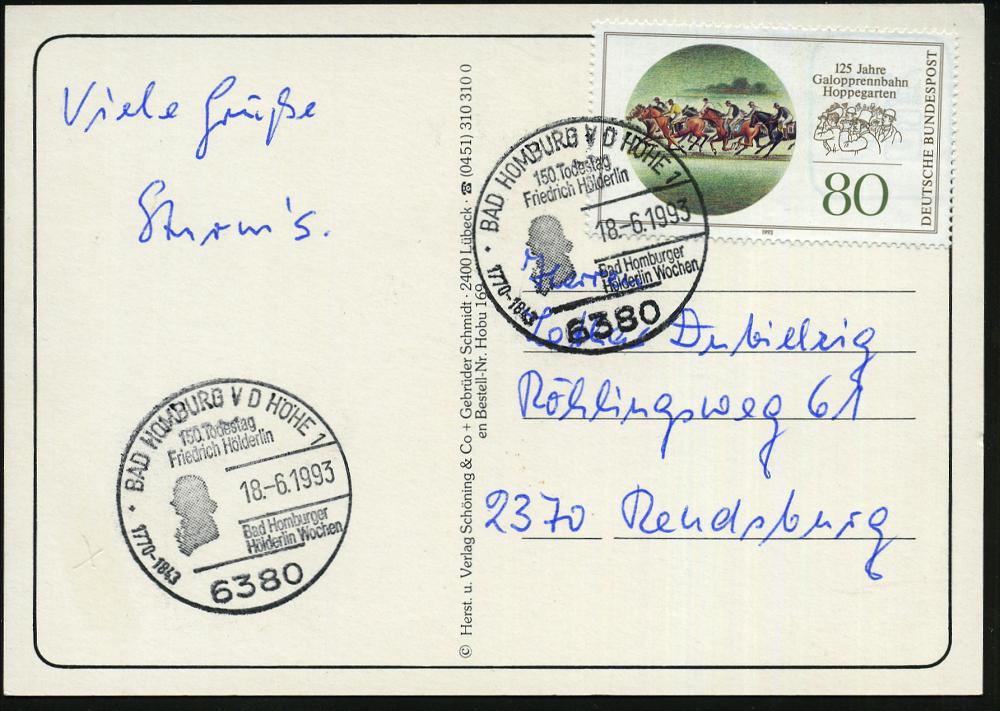 Viele Grüße
Sturm's.
BAD HOMBURG V D HÖHE 1
150. Todestag
Friedrich Hölderlin
18.-6.1993
Bad Homburger
Hölderlin Wochen
1770-1843
6380
© Herst. u. Verlag Schöning & Co + Gebrüder Schmidt · 2400 Lübeck · ☎ (04 51) 310 310 0
en Bestell-Nr. Hobu 169
125 Jahre
Galopprennbahn
Hoppegarten
80
DEUTSCHE BUNDESPOST
1993
BAD HOMBURG V D HÖHE 1
150. Todestag
Friedrich Hölderlin
18.-6.1993
Bad Homburger
Hölderlin Wochen
1770-1843
6380
Herrn
Lothar Dubielzig
Röhlingsweg 61
2370 Rendsburg